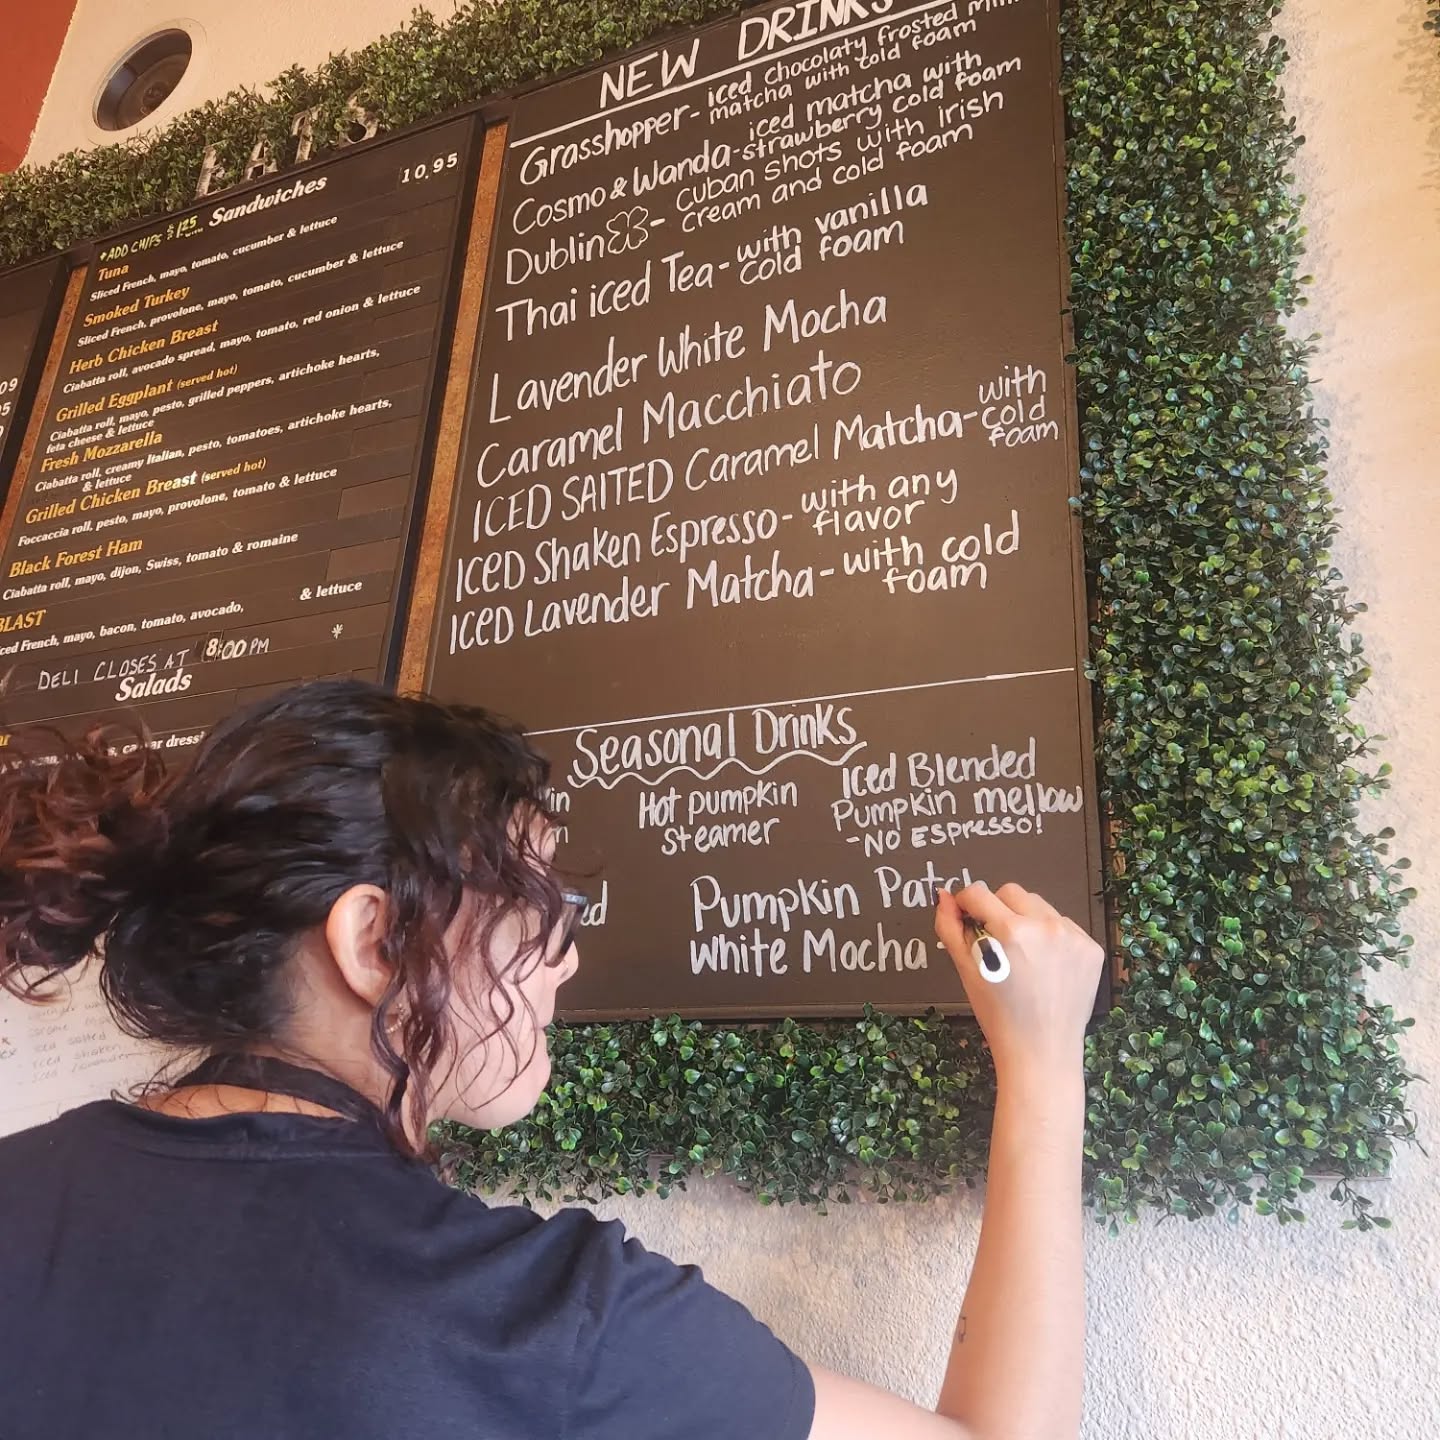 EATS
Sandwiches
10.95
+ADD CHIPS $1.25
Tuna
Sliced French, mayo, tomato, cucumber & lettuce
Smoked Turkey
Sliced French, provolone, mayo, tomato, cucumber & lettuce
Herb Chicken Breast
Ciabatta roll, avocado spread, mayo, tomato, red onion & lettuce
Grilled Eggplant (served hot)
Ciabatta roll, mayo, pesto, grilled peppers, artichoke hearts,
feta cheese & lettuce
Fresh Mozzarella
Ciabatta roll, creamy Italian, pesto, tomatoes, artichoke hearts,
& lettuce
Grilled Chicken Breast (served hot)
Foccaccia roll, pesto, mayo, provolone, tomato & lettuce
Black Forest Ham
Ciabatta roll, mayo, dijon, Swiss, tomato & romaine
BLAST
mayo, bacon, tomato, avocado, & lettuce
DELI CLOSES AT 8:00 PM *
Salads
NEW DRINKS
Grasshopper- iced chocolaty frosted
matcha with cold foam
Cosmo & Wanda- iced matcha with
strawberry cold foam
Dublin - Cuban shots with Irish
cream and cold foam
Thai iced Tea- with vanilla
cold foam
Lavender White Mocha
Caramel Macchiato
ICED SAlTED Caramel Matcha- with
cold
foam
ICED Shaken Espresso- with any
flavor
ICED Lavender Matcha- with cold
foam
Seasonal Drinks
Hot pumpkin
steamer
Iced Blended
Pumpkin mellow
-NO ESPRESSO!
Pumpkin Patch
White Mocha -